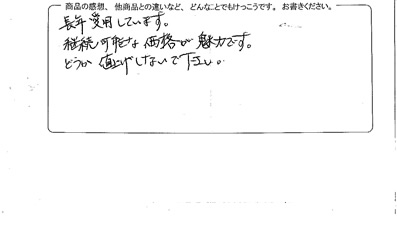 商品の感想、他商品との違いなど、どんなことでもけっこうです。お書きください。
長年愛用しています。
継続可能な価格が魅力です。
どうか値上げしないで下さい。